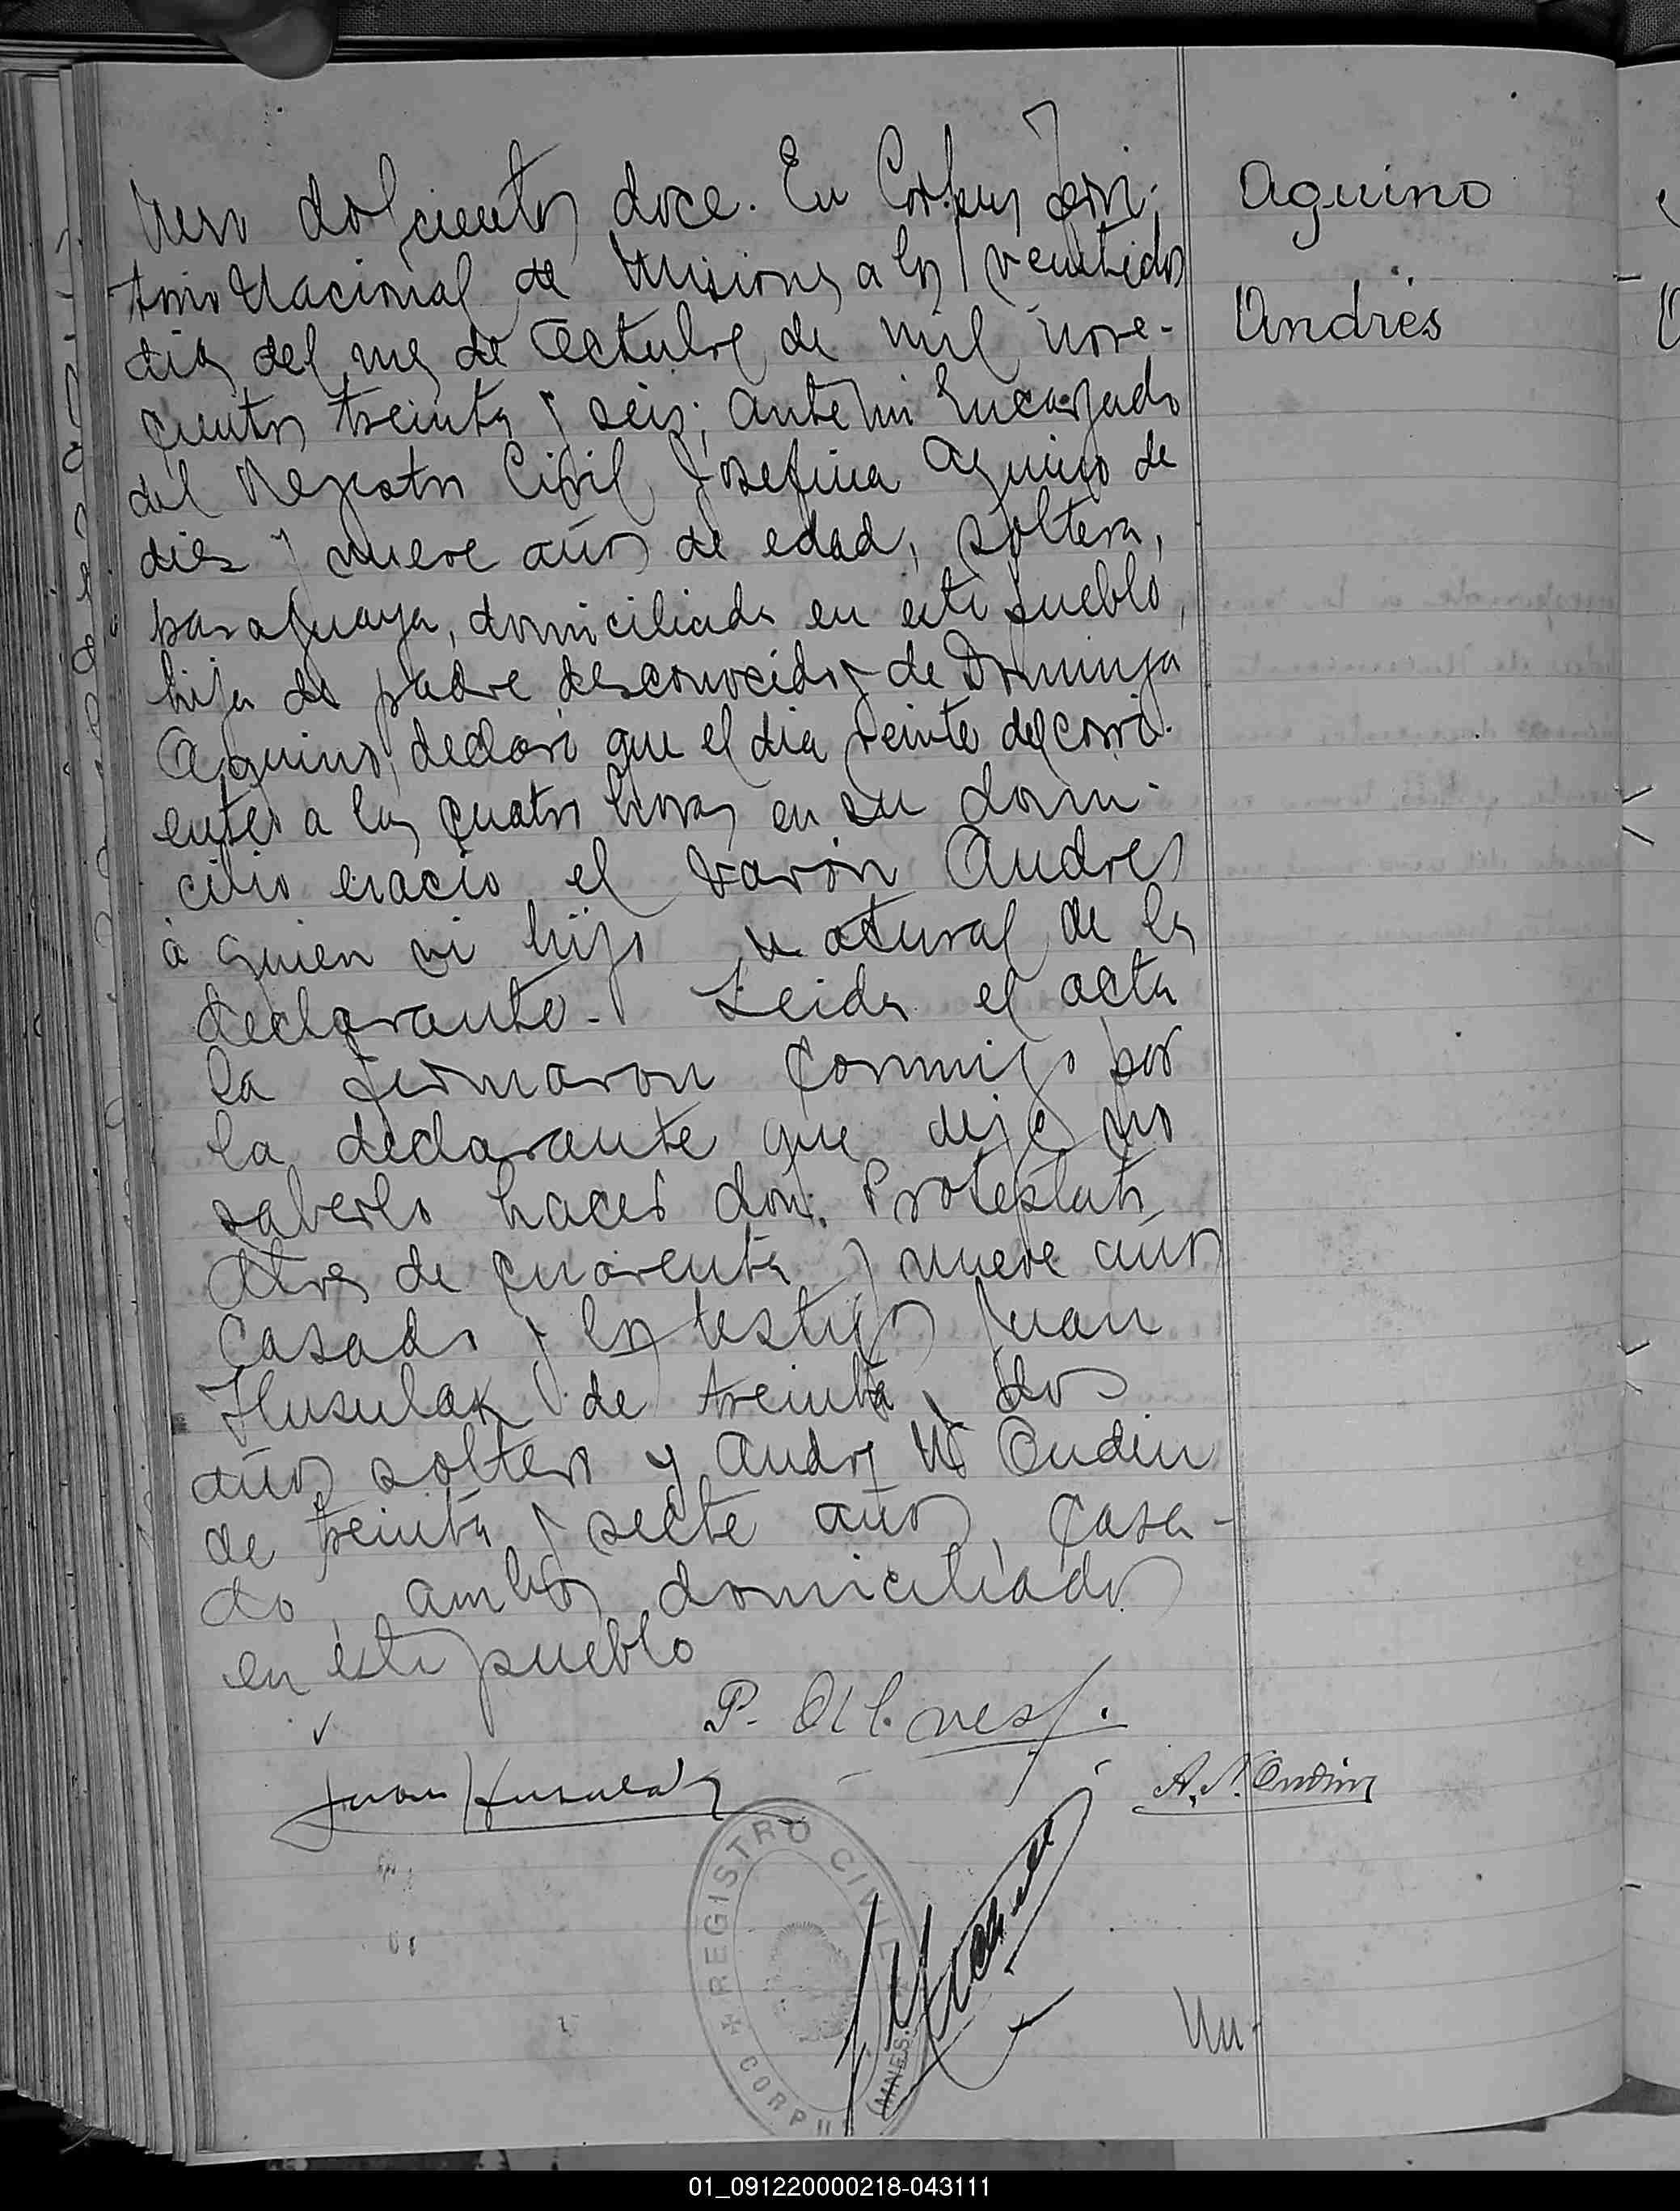 mero doscientos doce. En Corpus Terri-
torio Nacional de Misiones a los veintidos
dias del mes de Octubre de mil nove-
cientos treinta y seis; ante mi Encargado
del Registro Civil Josefina Aquino de
dies y nueve años de edad, soltera,
paraguaya, domiciliada en este pueblo,
hija de padre desconocido y de Dominga
Aquino, declaró que el dia veinte del corri-
ente a las cuatro horas en su domi-
cilio nació el varón Andres
a quien vi hijo natural de la
declarante. Leida el acta
la firmaron conmigo por
la declarante que dijo no
saberlo hacer don
de cuarenta y nueve años
casado y los testigos Juan
Husulak de treinta y dos
años soltero y Andres N Ondin
de treinta y siete años, casa-
do, ambos domiciliados
en este pueblo
Aquino
Andrés
P.
Juan Husulak
A. N. Ondin
REGISTRO CIVIL
CORPUS (MNES.)
Nu-
01_091220000218-043111